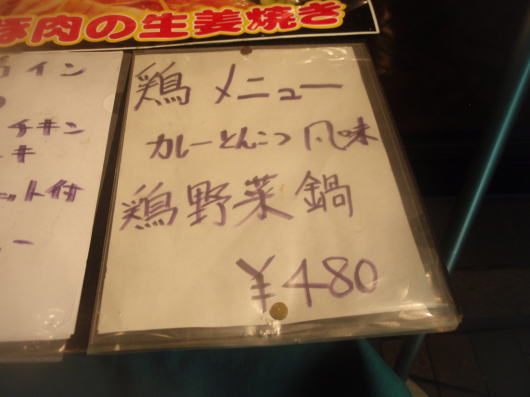 豚肉の生姜焼き
イン
チキン
キ
ット付
ー
鶏メニュー
カレーとんこつ風味
鶏野菜鍋
¥480